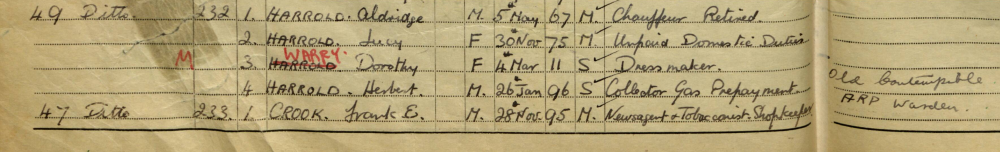 49 Ditto 232 1. HARROLD. Aldridge M. 5 May 67 M. Chauffeur Retired.
2. HARROLD. Lucy F 30 Nov 75 M Unpaid Domestic Duties
WARRY.
M 3. HARROLD Dorothy F 4 Mar 11 S Dressmaker.
4 HARROLD. Herbert. M. 26 Jan 96 S Collector Gas Prepayment Old Contemptible
ARP Warden.
47 Ditto 233. 1. CROOK. Frank E. M. 28 Nov. 95 M. Newsagent & Tobacconist Shopkeeper